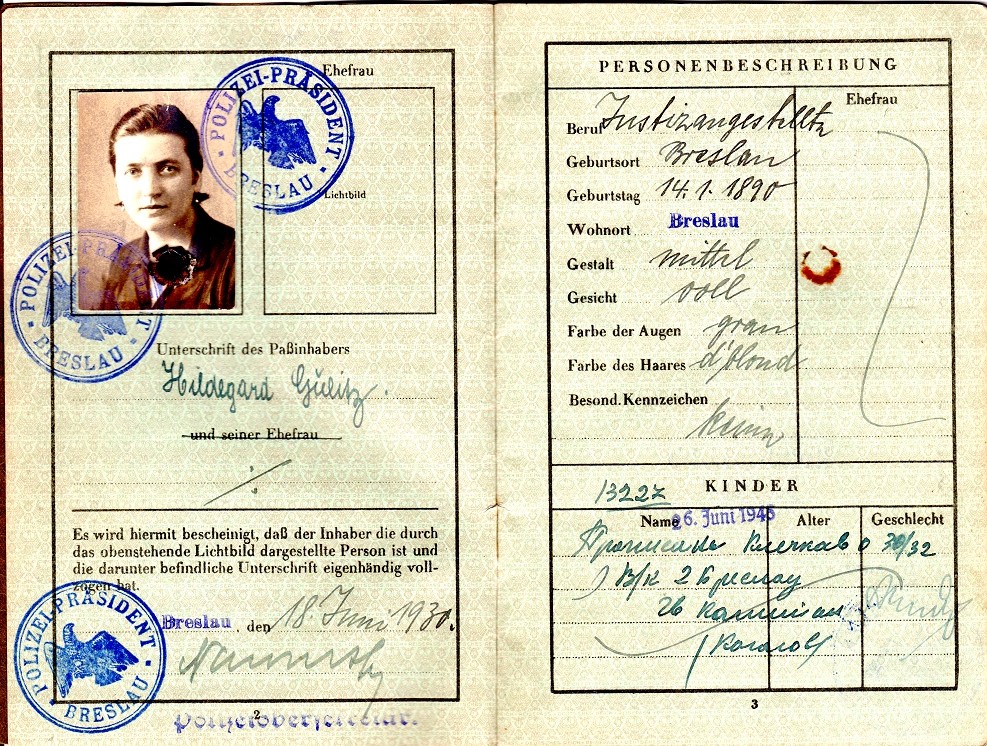 Ehefrau
POLIZEI-PRÄSIDENT
BRESLAU
Lichtbild
POLIZEI-PRÄSIDENT
BRESLAU
Unterschrift des Paßinhabers
Hildegard Gülitz.
und seiner Ehefrau
Es wird hiermit bescheinigt, daß der Inhaber die durch
das obenstehende Lichtbild dargestellte Person ist und
die darunter befindliche Unterschrift eigenhändig voll-
zogen hat.
Breslau, den 18. Juni 1930.
POLIZEI-PRÄSIDENT
BRESLAU
Polizeiobersekretär.
2
PERSONENBESCHREIBUNG
Ehefrau
Beruf Justizangestellte
Geburtsort Breslau
Geburtstag 14.1.1890
Wohnort Breslau
Gestalt mittel
Gesicht voll
Farbe der Augen grau
Farbe des Haares d'blond
Besond. Kennzeichen
keine
KINDER
Name Alter Geschlecht
26. Juni 1945
30/32
В/К 2 Бреслау
3